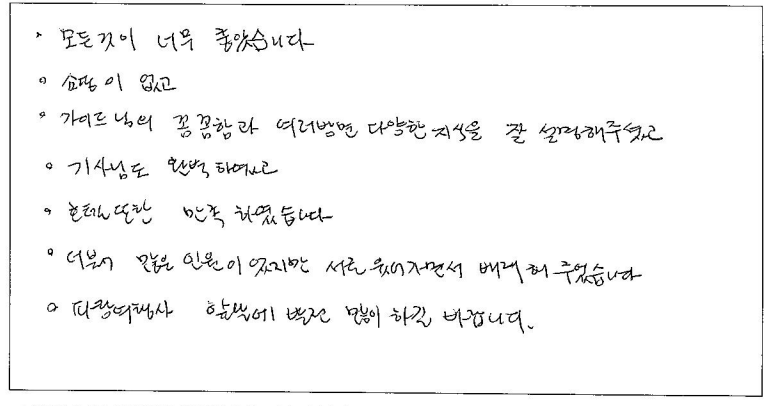 • 모든것이 너무 좋았습니다
• 쇼핑이 없고
• 가이드님의 꼼꼼함과 여러방면 다양한 지식을 잘 설명해주셨고
• 기사님도 완벽하였고
• 호텔또한 만족하였습니다
• 더불어 많은 인원이 있지만 서로 웃어가면서 배려해 주었습니다
• 여행사 앞날에 발전 많이 하길 바랍니다.